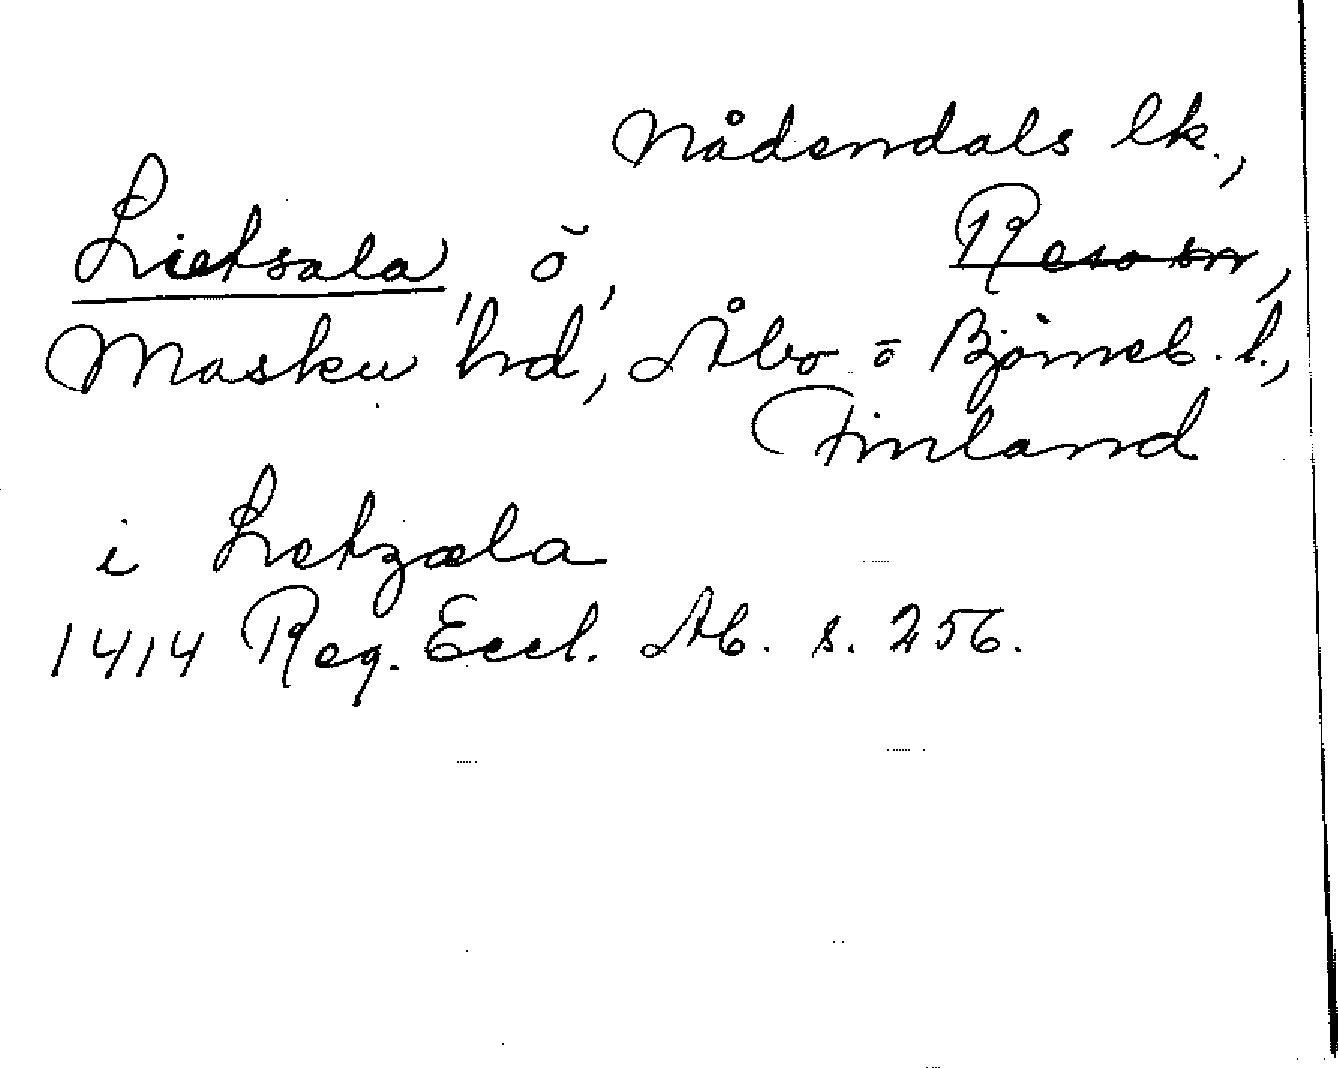 Nådendals lk.,
Lietsala, ö, Reso sn,
Masku hd, Åbo o Björneb. l.,
Finland
i Lietzala
1414 Reg. Eccl. Ab. s. 256.